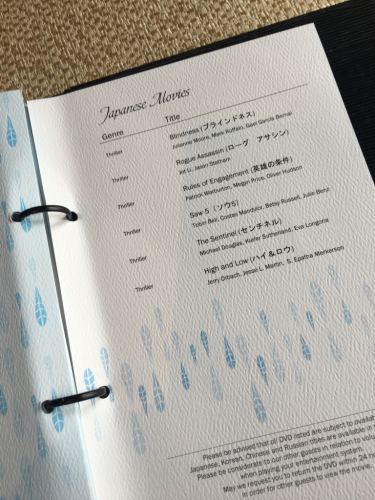 Japanese Movies
Genre Title
Thriller Blindness (ブラインドネス)
Julianne Moore, Mark Ruffalo, Gael Garcia Bernal
Thriller Rogue Assassin (ローグ アサシン)
Jet Li, Jason Statham
Thriller Rules of Engagement (英雄の条件)
Patrick Warburton, Megyn Price, Oliver Hudson
Thriller Saw 5 (ソウ5)
Tobin Bell, Costas Mandylor, Betsy Russell, Julie Benz
Thriller The Sentinel (センチネル)
Michael Douglas, Kiefer Sutherland, Eva Longoria
Thriller High and Low (ハイ&ロウ)
Jerry Orbach, Jesse L. Martin, S. Epatha Merkerson
Please be advised that all DVD listed are subject to availab
Japanese, Korean, Chinese and Russian titles are available in
Please be considerate to our other guests in relation to volu
when playing your entertainment system.
May we request you to return the DVD within 24
in order for other guests to view the movie.